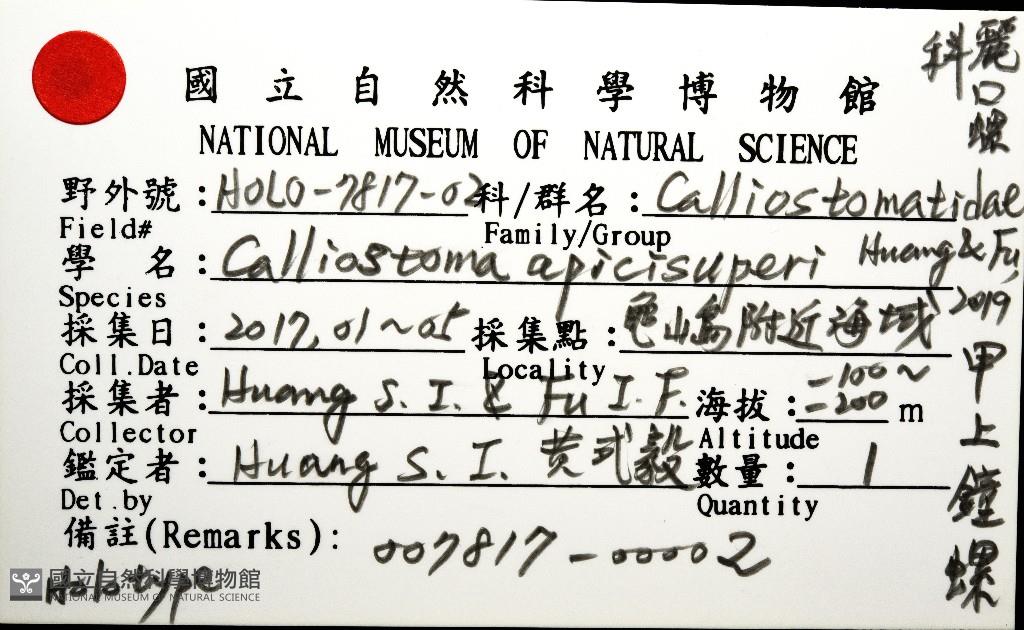 國立自然科學博物館
NATIONAL MUSEUM OF NATURAL SCIENCE
野外號：HOLO-7817-02 科/群名：Calliostomatidae
Field# Family/Group
學名：Calliostoma apicisuperi Huang & Fu, 2019
Species
採集日：2017,01～05 採集點：龜山島附近海域
Coll.Date Locality
採集者：Huang S. I. & Fu I. F. 海拔：-100～-200 m
Collector Altitude
鑑定者：Huang S. I. 黃式毅 數量：1
Det.by Quantity
備註(Remarks)： 007817-00002
Holotype
麗口螺科
甲上鐘螺
國立自然科學博物館
NATIONAL MUSEUM OF NATURAL SCIENCE